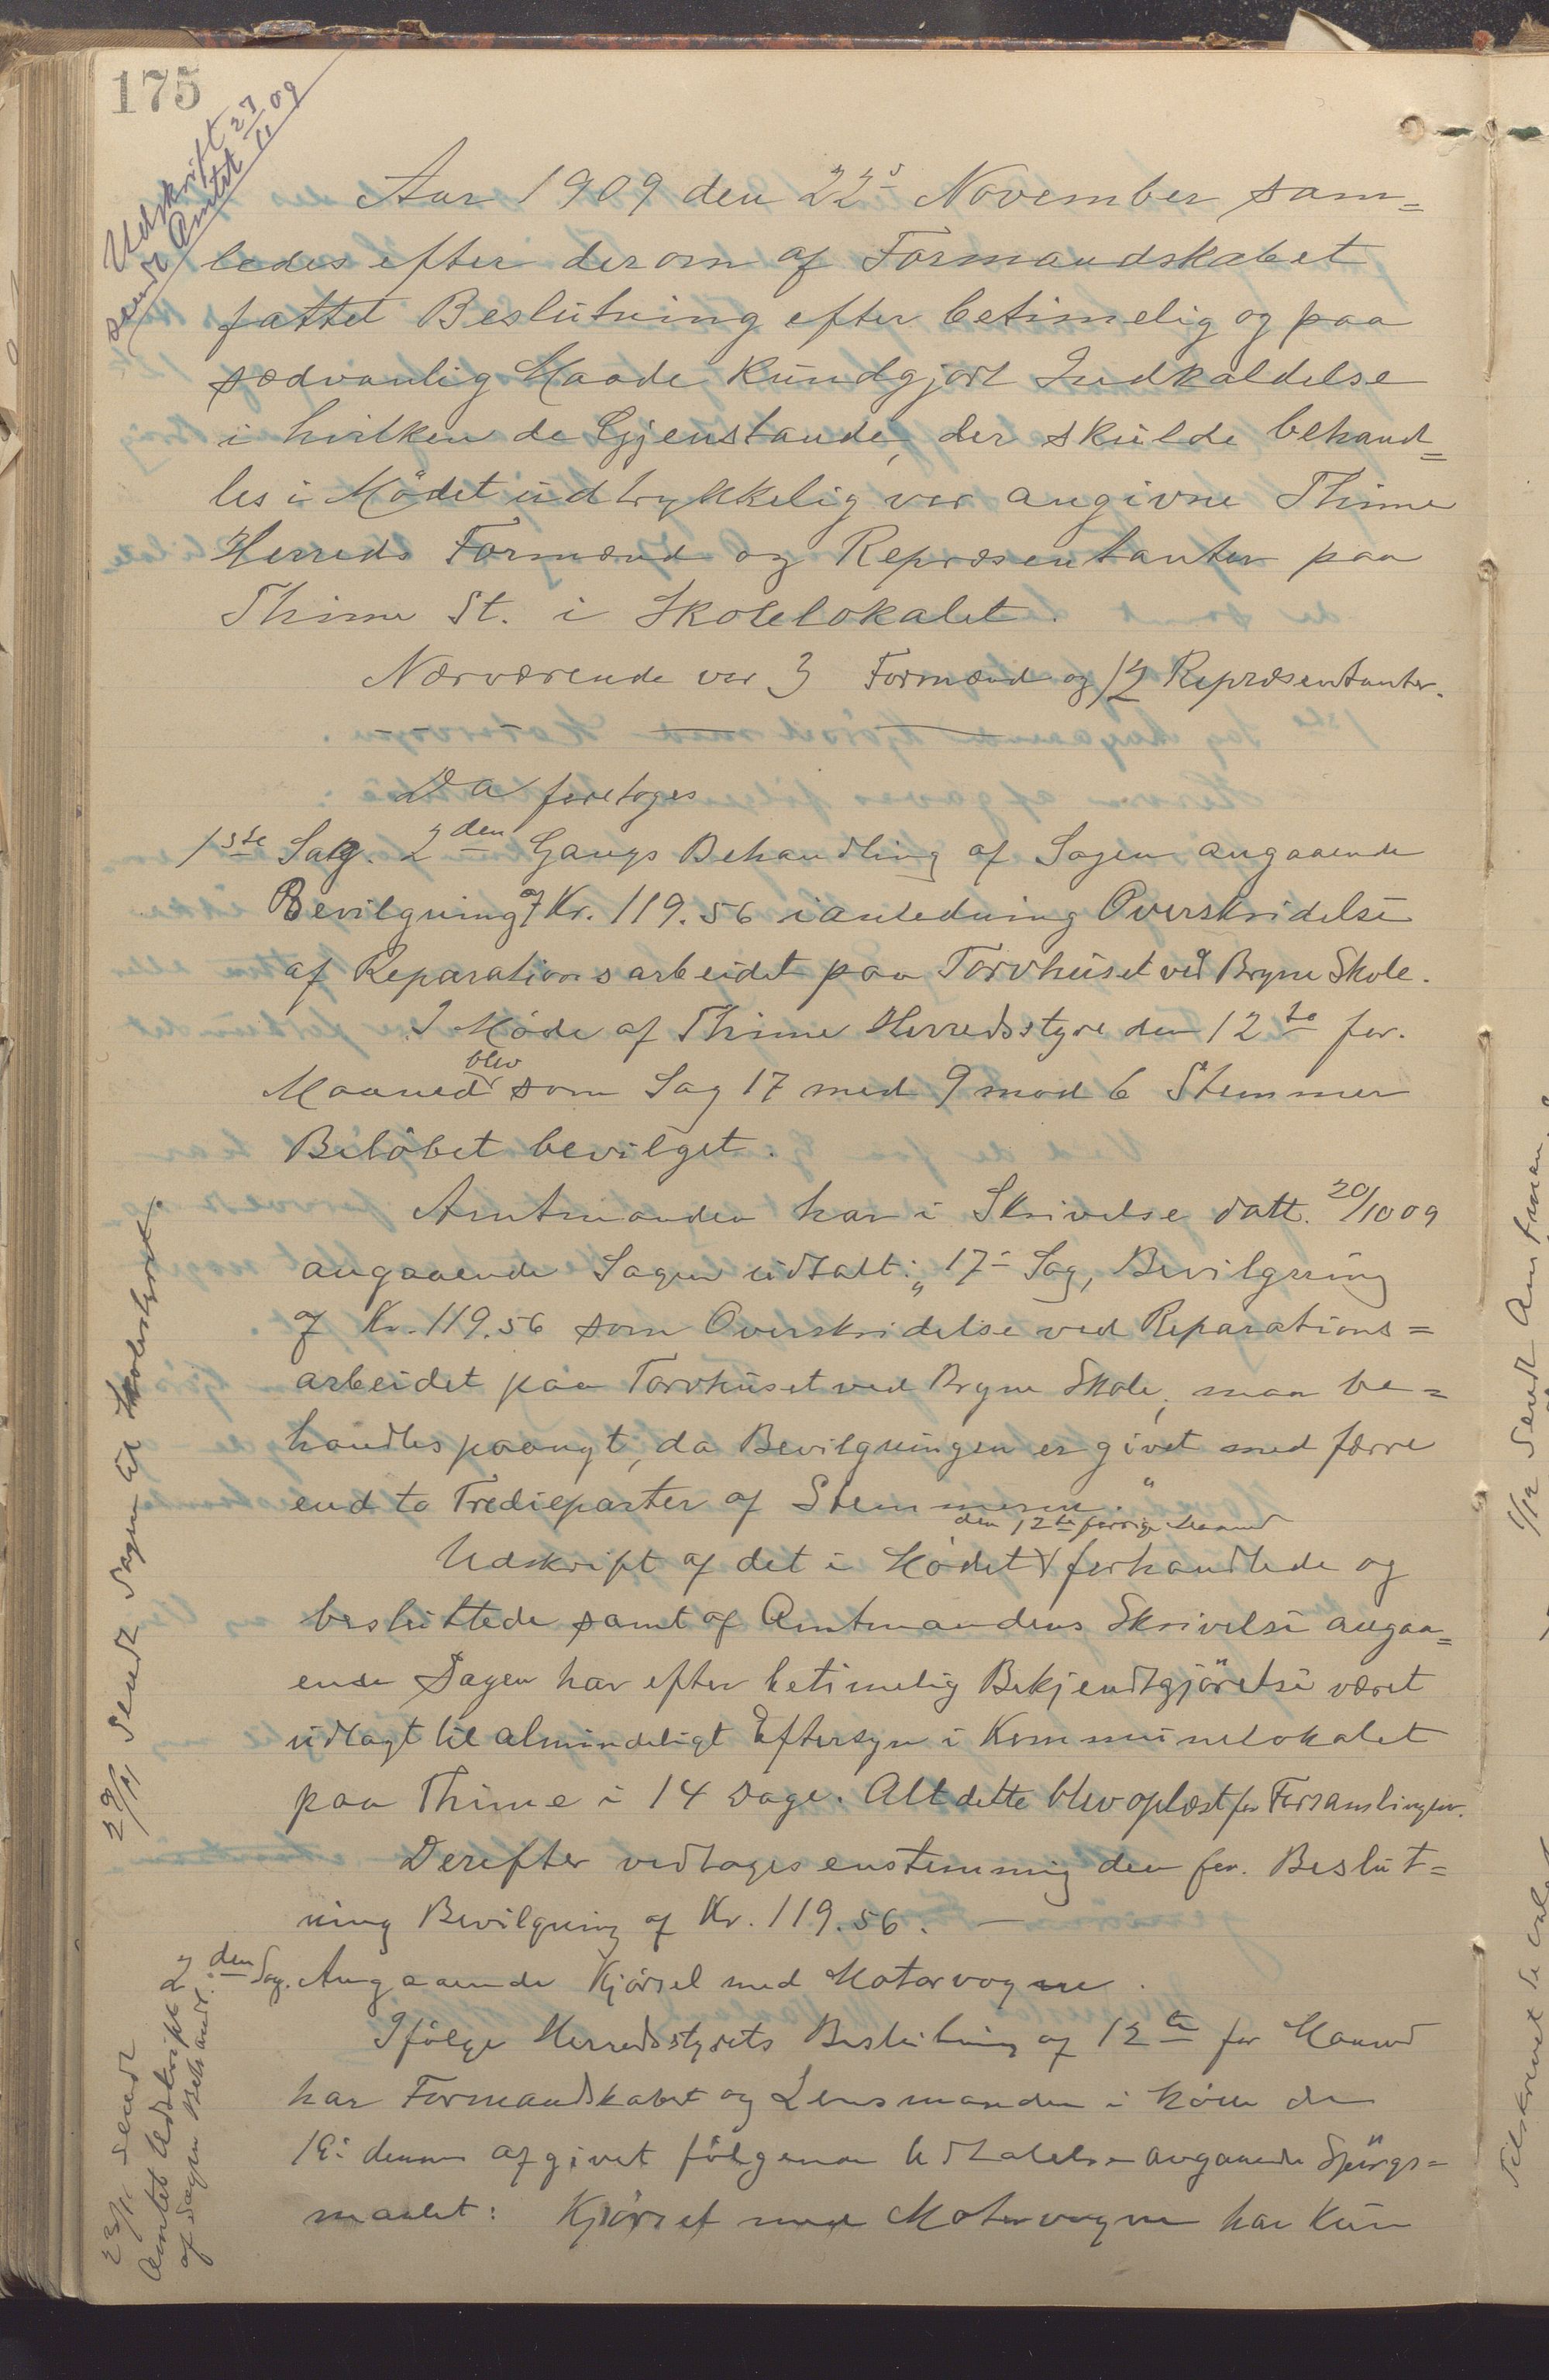 175
Udskrift 27/11 09
sendt Amtet
Aar 1909 den 22de November sam=
ledes efter derom af Formandskabet
fattet Beslutning efter betimelig og paa
sædvanlig Maade kundgjort Indkaldelse
i hvilken de Gjenstande, der skulde behand=
les i Mödet udtrykkelig var angivne Thime
Herreds Formænd og Repræsentanter paa
Thime St. i Skolelokalet.
Nærværende var 3 Formænd og 12 Repræsentanter.
Da foretoges
1ste Sag. 2den Gangs Behandling af Sagen angaaende
Bevilgning af Kr. 119.56 i anledning Overskridelse
af Reparationsarbeidet paa Torvhuset ved Bryne Skole.
I Möde af Thime Herredsstyre den 12te for.
Maaned blev som Sag 17 med 9 mod 6 Stemmer
Belöbet bevilget.
Amtmanden har i Skrivelse datt. 20/10 09
angaaende Sagen udtalt: „17- Sag, Bevilgning
af Kr. 119.56 som Overskridelse ved Reparations=
arbeidet paa Torvhuset ved Bryne Skole, maa be=
handles paanyt, da Bevilgningen er givet med færre
end to Tredieparter af Stemmerne."
Udskrift af det i Mödet den 12te forrige Maaned forhandlede og
besluttede samt af Amtmandens Skrivelse angaa=
ende Sagen har efter betimelig Bekjendtgjörelse været
udlagt til almindeligt Eftersyn i Kommunelokalet
paa Thime i 14 Dage. Alt dette blev oplæst for Forsamlingen.
Derefter vedtoges enstemmig den for. Beslut=
ning Bevilgning af Kr. 119.56. —
29/11 Sendt Sagen til Skolestyret.
2den Sag. Angaaende Kjörsel med Motorvogne.
Ifölge Herredsstyrets Beslutning af 12te for Maaned
har Formandskabet og Lensmanden i Möde den
18- dennes afgivet fölgende Udtalelse angaaende Spörgs=
maalet: Kjörsel med Motorvogne har kun
23/11 Sendt
Amtet Udskrift
af Sagens Behandl.
1/12 Sendt Amtman